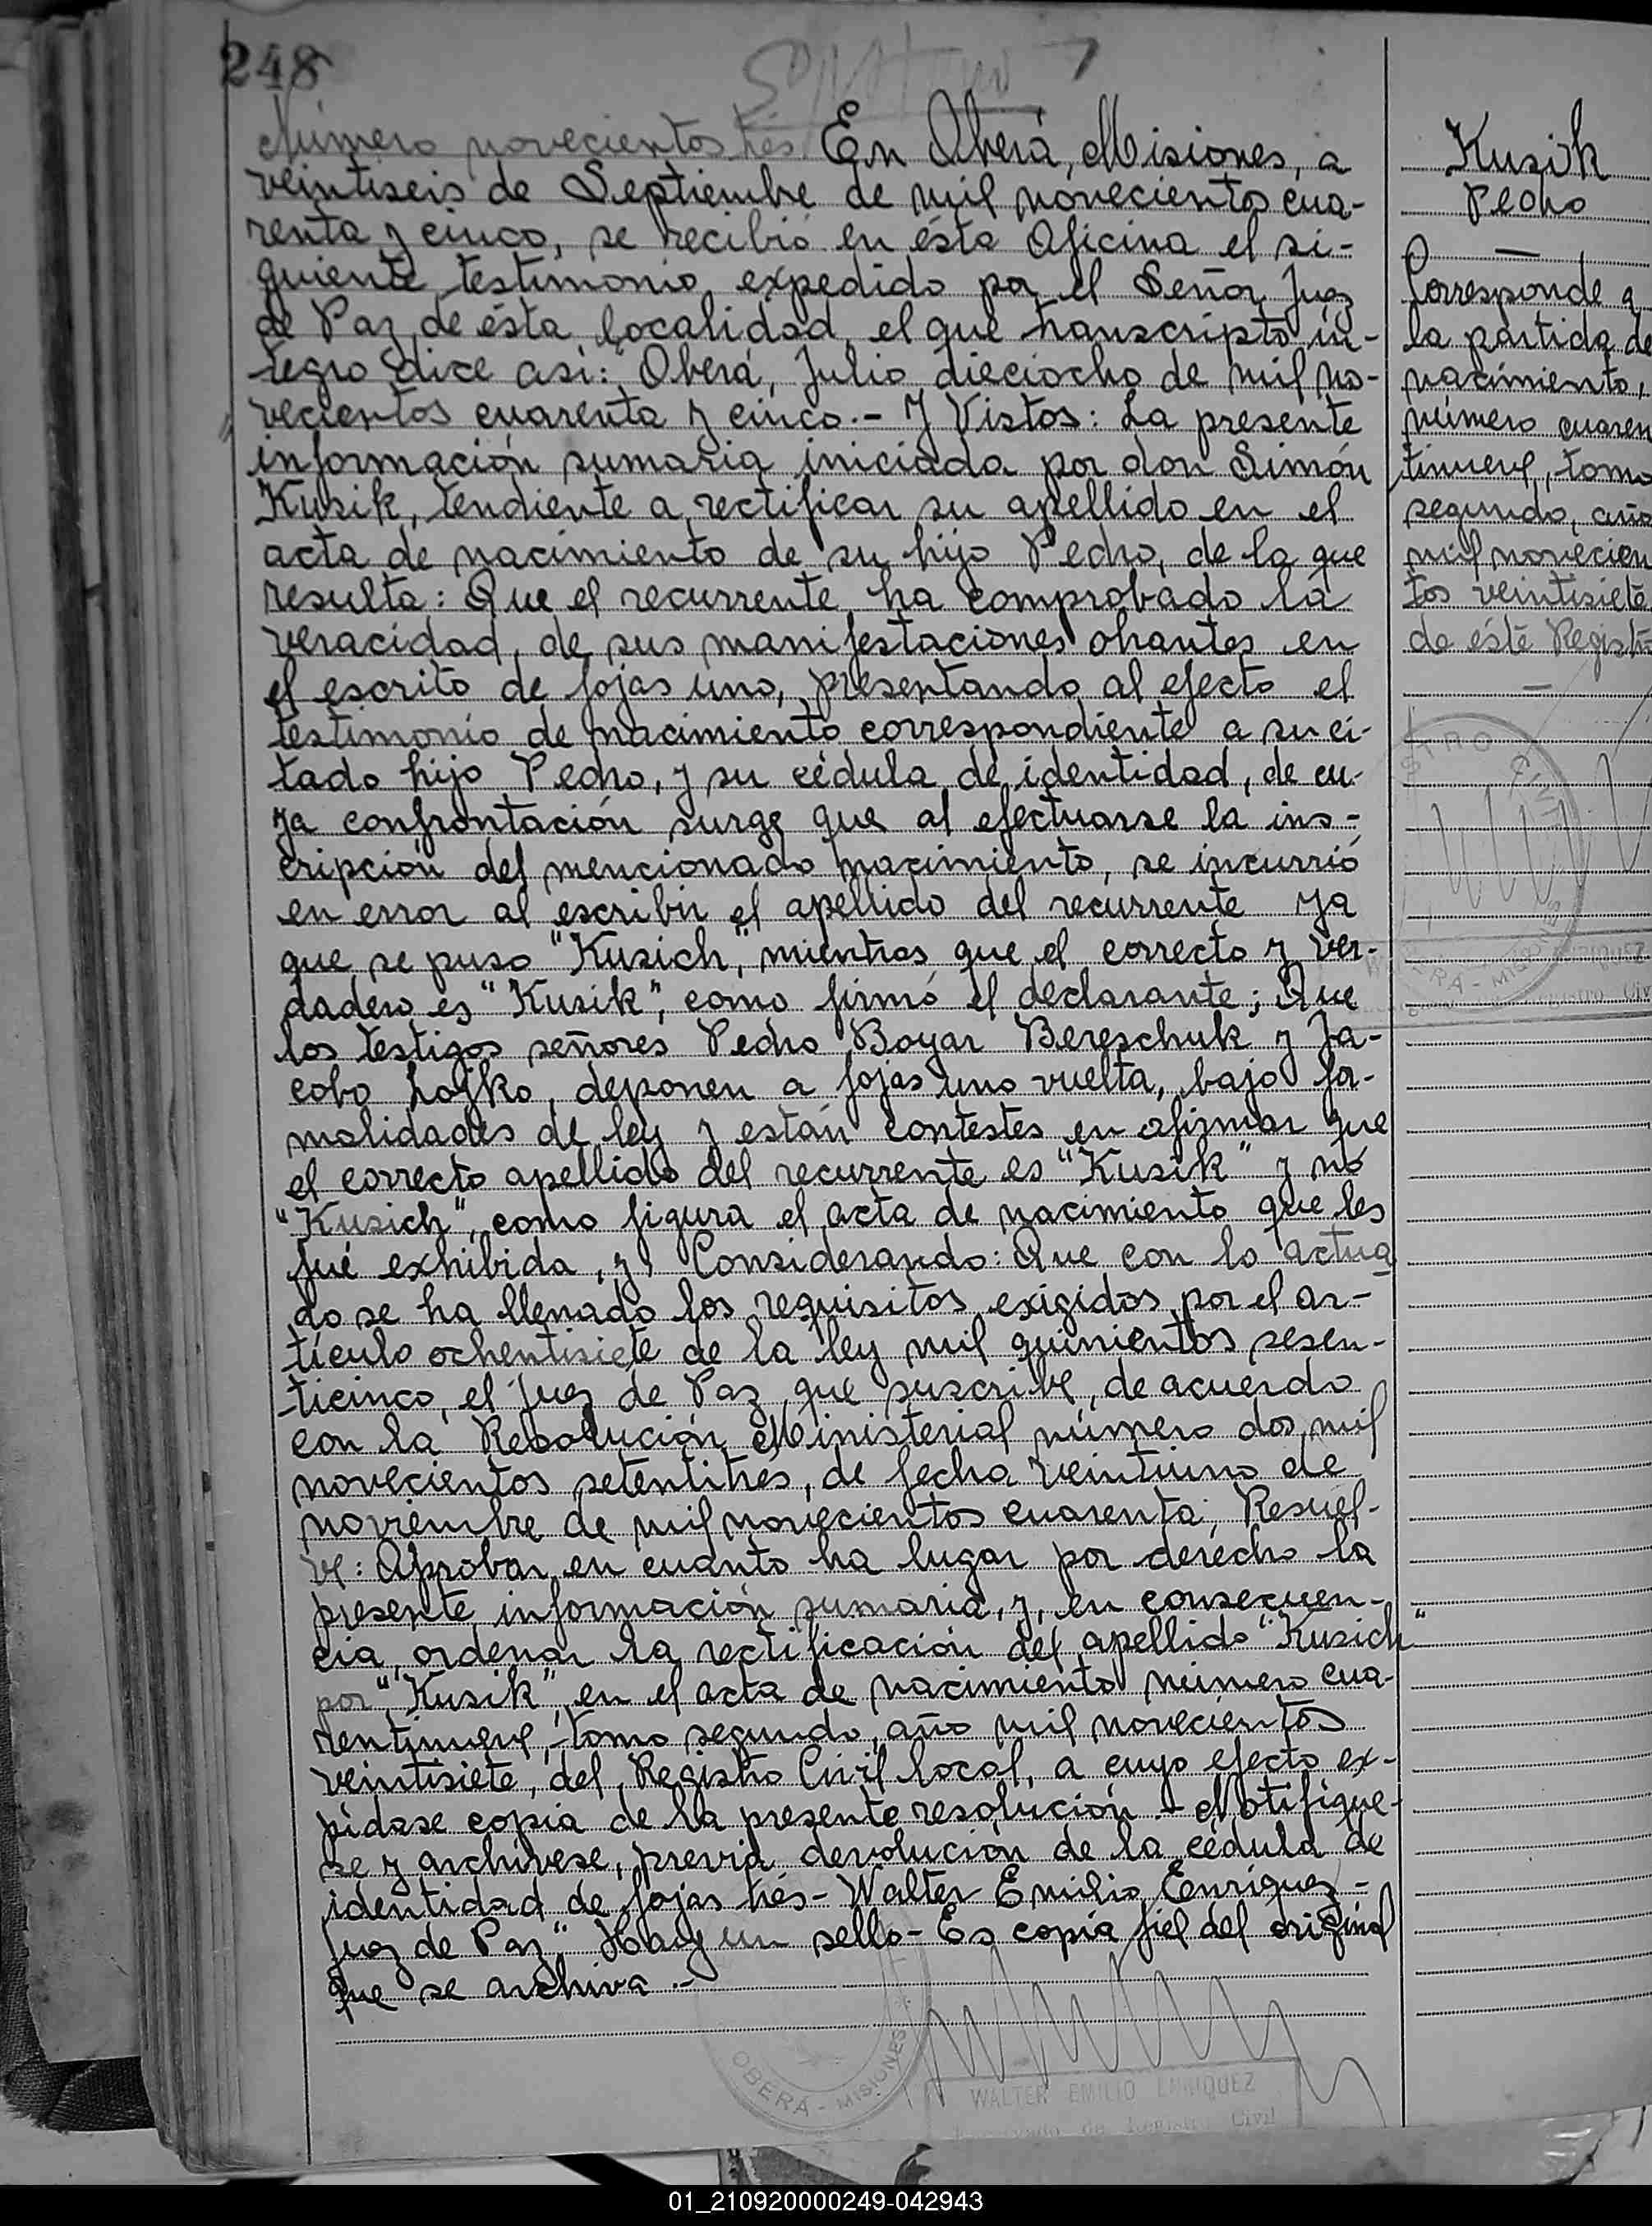 248
Número novecientos trés. En Oberá, Misiones, a
veintiseis de Septiembre de mil novecientos cua-
renta y cinco, se recibió en ésta Oficina el si-
guiente testimonio expedido por el Señor Juez
de Paz de ésta localidad, el que transcripto in-
tegro dice asi: "Oberá, Julio dieciocho de mil no-
vecientos cuarenta y cinco.- Y Vistos: La presente
información sumaria iniciada por don Simón
Kusik, tendiente a rectificar su apellido en el
acta de nacimiento de su hijo Pedro, de la que
resulta: Que el recurrente ha comprobado la
veracidad de sus manifestaciones obrantes en
el escrito de fojas uno, presentando al efecto el
testimonio de nacimiento correspondiente a su ci-
tado hijo Pedro, y su cédula de identidad, de cu-
ya confrontación surge que al efectuarse la ins-
cripción del mencionado nacimiento, se incurrió
en error al escribir el apellido del recurrente ya
que se puso "Kusich", mientras que el correcto y ver-
dadero es "Kusik", como firmó el declarante; Que
los testigos señores Pedro Boyar Bereschuk y Ja-
cobo Lojko, deponen a fojas uno vuelta, bajo for-
malidades de ley y están contestes en afirmar que
el correcto apellido del recurrente es "Kusik" y no
"Kusich", como figura el acta de nacimiento que les
fué exhibida, y, Considerando: Que con lo actua
do se ha llenado los requisitos exigidos por el ar-
tículo ochentisiete de la ley mil quinientos sesen-
ticinco, el Juez de Paz que suscribe, de acuerdo
con la Resolución Ministerial número dos mil
novecientos setentitrés, de fecha veintiuno de
noviembre de mil novecientos cuarenta; Resuel-
ve: Aprobar en cuanto ha lugar por derecho la
presente información sumaria, y, en consecuen-
cia, ordenar la rectificación del apellido "Kusich"
por "Kusik", en el acta de nacimiento número cua-
rentinueve, tomo segundo, año mil novecientos
veintisiete, del Registro Civil local, a cuyo efecto ex-
pídase copia de la presente resolución.- Notifíque-
se y archívese, previa devolución de la cédula de
identidad de fojas trés- Walter Emilio Enriquez-
Juez de Paz". Hay un sello- Es copia fiel del original
que se archiva.-
OBERÁ - MISIONES
WALTER EMILIO ENRIQUEZ
Kusik
Pedro
Corresponde a
la partida de
nacimiento,
número cuaren
tinueve, tomo
segundo, año
mil novecien
tos veintisiete
de éste Registro
01_210920000249-042943